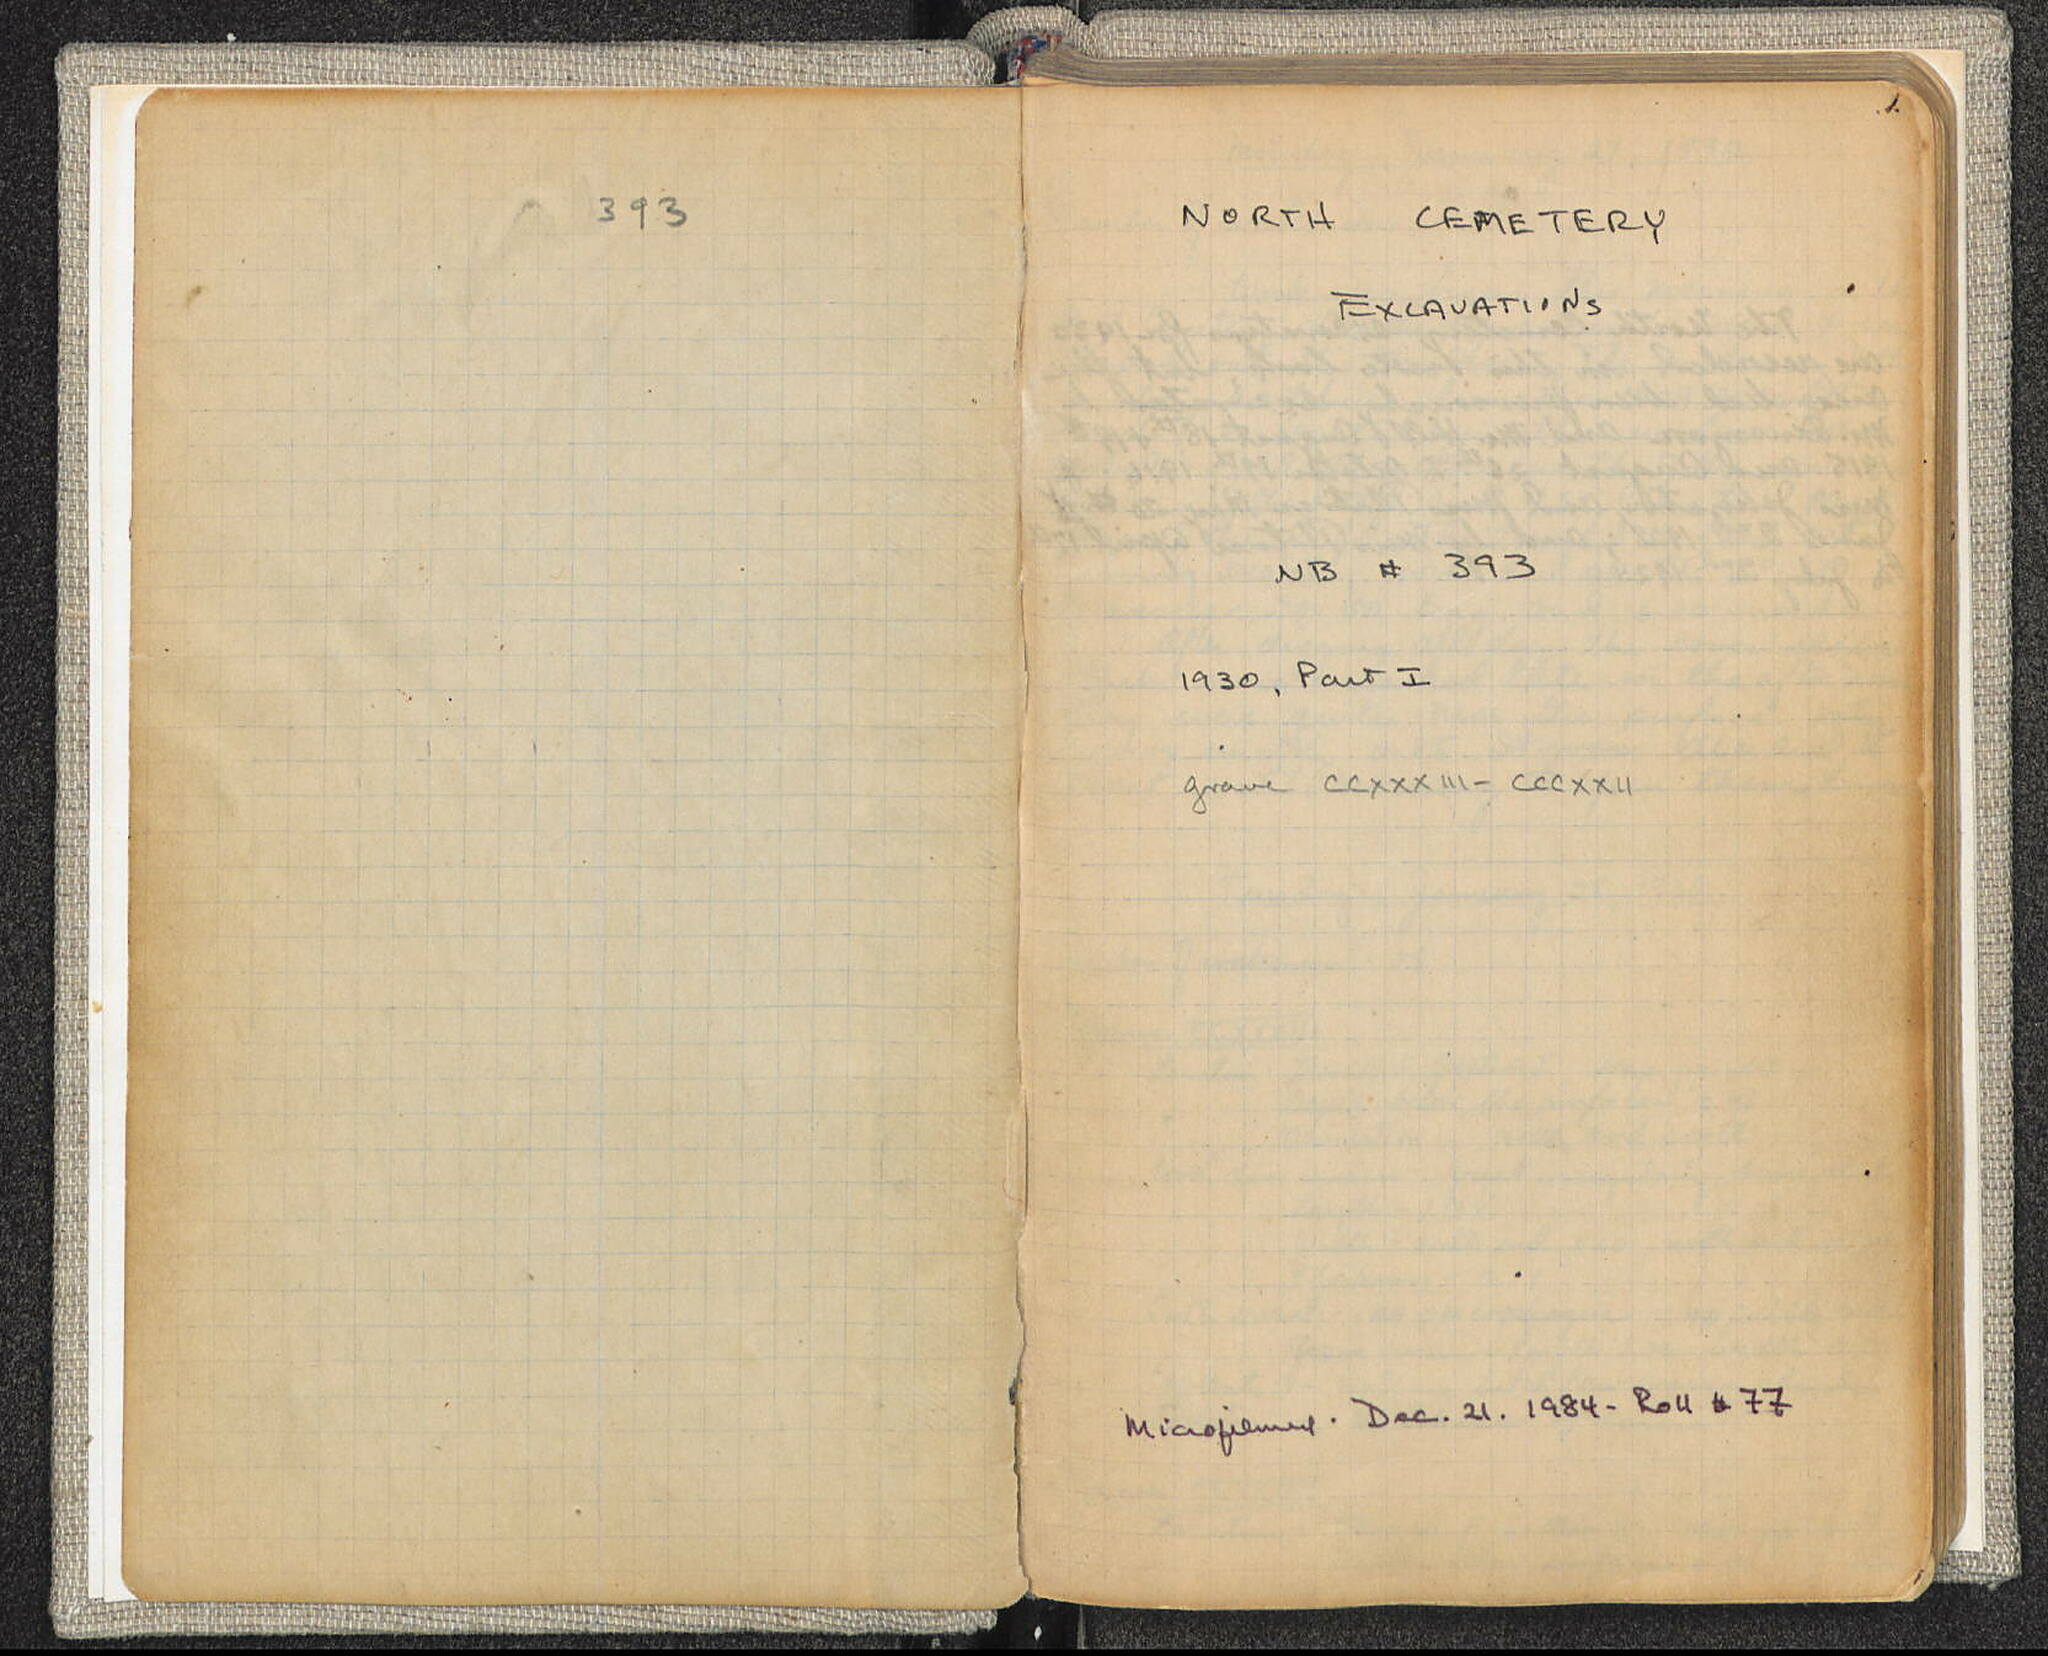 393
1.
NORTH CEMETERY
EXCAVATIONS
NB # 393
1930, Part I
grave CCXXXIII - CCCXXII
Microfilmed. Dec. 21. 1984 - Roll # 77